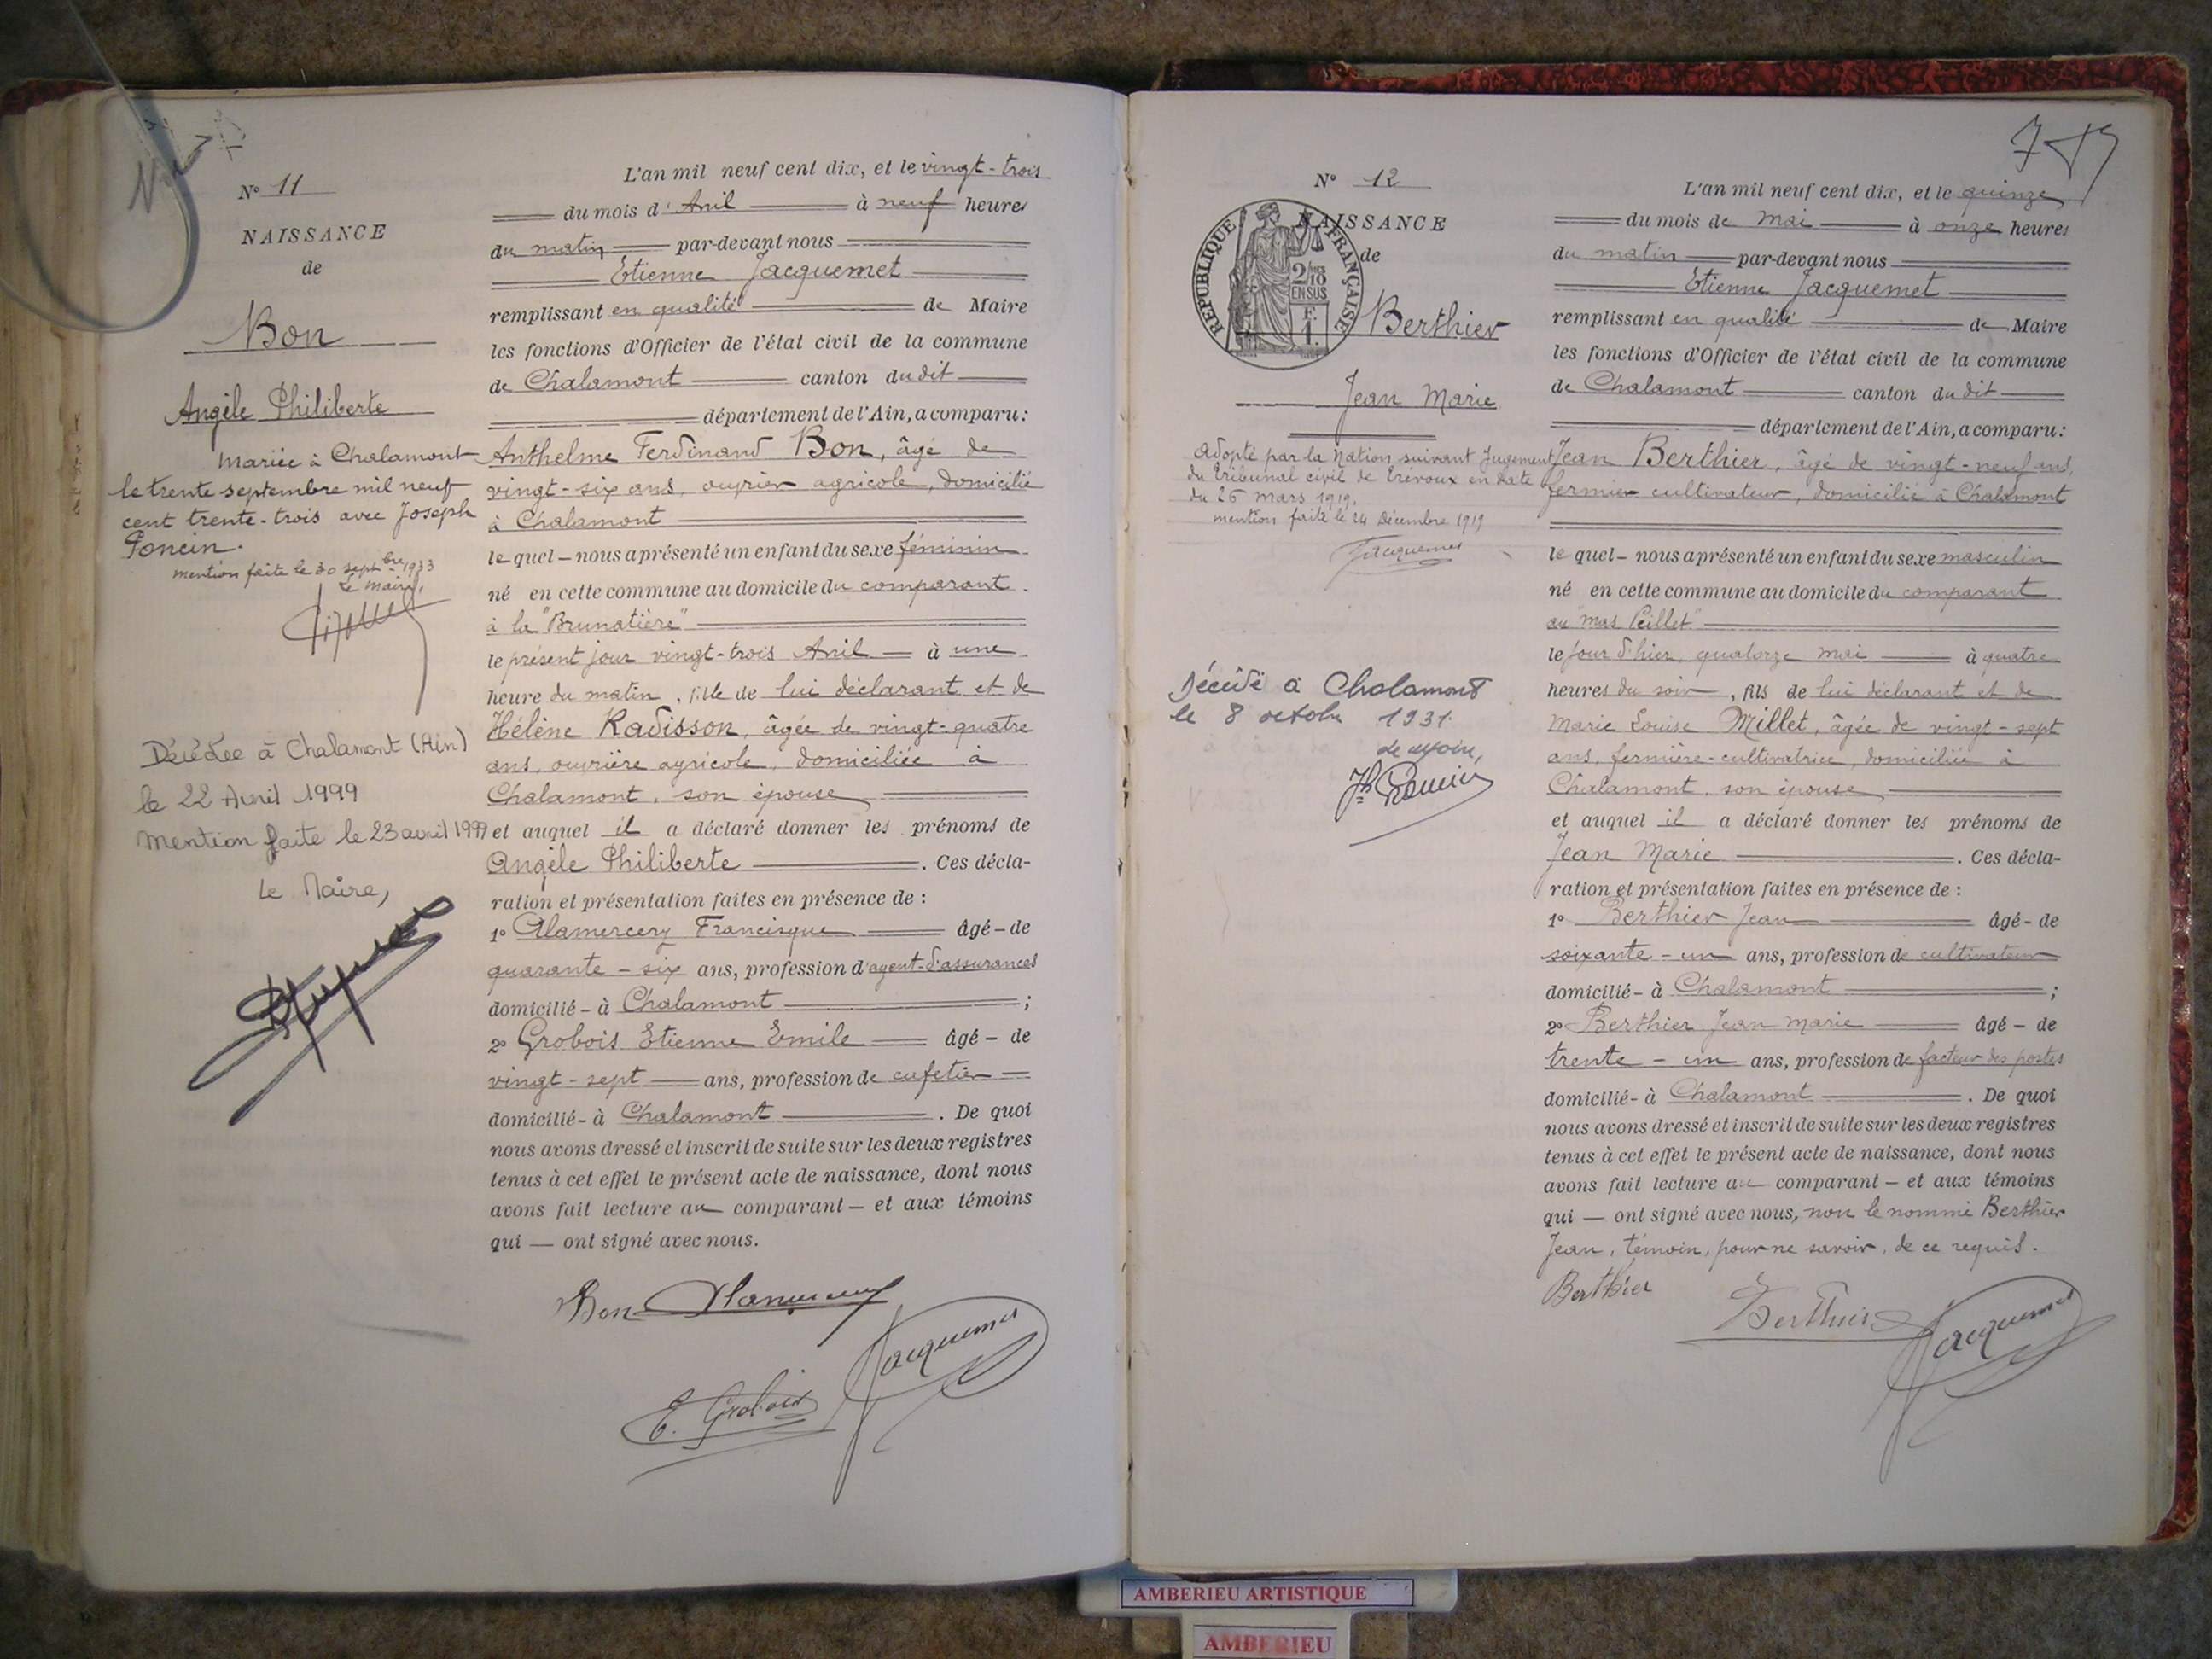 N° 11
NAISSANCE
de
Bon
Angèle Philiberte
Mariée à Chalamont
le trente septembre mil neuf
cent trente-trois avec Joseph
Poncin.
mention faite le 30 septbre 1933
Le Maire,
Décédée à Chalamont (Ain)
le 22 Avril 1999
Mention faite le 23 avril 1999
Le Maire,
L'an mil neuf cent dix, et le vingt-trois
du mois d'Avril à neuf heures
du matin par-devant nous
Etienne Jacquemet
remplissant en qualité de Maire
les fonctions d'Officier de l'état civil de la commune
de Chalamont canton dudit
département de l'Ain, a comparu:
Anthelme Ferdinand Bon, âgé de
vingt-six ans, ouvrier agricole, domicilié
à Chalamont
le quel - nous a présenté un enfant du sexe féminin
né en cette commune au domicile du comparant
à la "Brunatière"
le présent jour vingt-trois Avril à une
heure du matin, fille de lui déclarant et de
Hélène Radisson, âgée de vingt-quatre
ans, ouvrière agricole, domiciliée à
Chalamont, son épouse
et auquel il a déclaré donner les prénoms de
Angèle Philiberte. Ces décla-
ration et présentation faites en présence de :
1° Alamercery Francisque âgé - de
quarante - six ans, profession d'agent-d'assurances
domicilié - à Chalamont ;
2° Grobois Etienne Emile âgé - de
vingt-sept ans, profession de cafetier
domicilié - à Chalamont. De quoi
nous avons dressé et inscrit de suite sur les deux registres
tenus à cet effet le présent acte de naissance, dont nous
avons fait lecture au comparant - et aux témoins
qui — ont signé avec nous.
Bon Alamercery
Jacquemet
E. Grobois
N° 12
NAISSANCE
de
RÉPUBLIQUE FRANÇAISE
2/10
EN SUS
Berthier
Jean Marie
Adopté par la Nation suivant Jugement
du Tribunal civil de Trévoux en date
du 26 mars 1919.
mention faite le 24 Décembre 1919
Jacquemet
Décédé à Chalamont
le 8 octobre 1931.
Le Maire,
L'an mil neuf cent dix, et le quinze
du mois de Mai à onze heures
du matin par-devant nous
Etienne Jacquemet
remplissant en qualité de Maire
les fonctions d'Officier de l'état civil de la commune
de Chalamont canton dudit
département de l'Ain, a comparu:
Jean Berthier, âgé de vingt-neuf ans,
fermier cultivateur, domicilié à Chalamont
le quel - nous a présenté un enfant du sexe masculin
né en cette commune au domicile du comparant
au "Mas Peillet"
le jour d'hier, quatorze mai à quatre
heures du soir, fils de lui déclarant et de
Marie Louise Millet, âgée de vingt-sept
ans, fermière-cultivatrice, domiciliée à
Chalamont, son épouse
et auquel il a déclaré donner les prénoms de
Jean Marie. Ces décla-
ration et présentation faites en présence de :
1° Berthier Jean âgé - de
soixante - un ans, profession de cultivateur
domicilié - à Chalamont ;
2° Berthier Jean Marie âgé - de
trente - un ans, profession de facteur des postes
domicilié - à Chalamont. De quoi
nous avons dressé et inscrit de suite sur les deux registres
tenus à cet effet le présent acte de naissance, dont nous
avons fait lecture au comparant - et aux témoins
qui — ont signé avec nous, non le nommé Berthier
Jean, témoin, pour ne savoir, de ce requis.
Berthier Berthier Jacquemet
AMBERIEU ARTISTIQUE
AMBERIEU